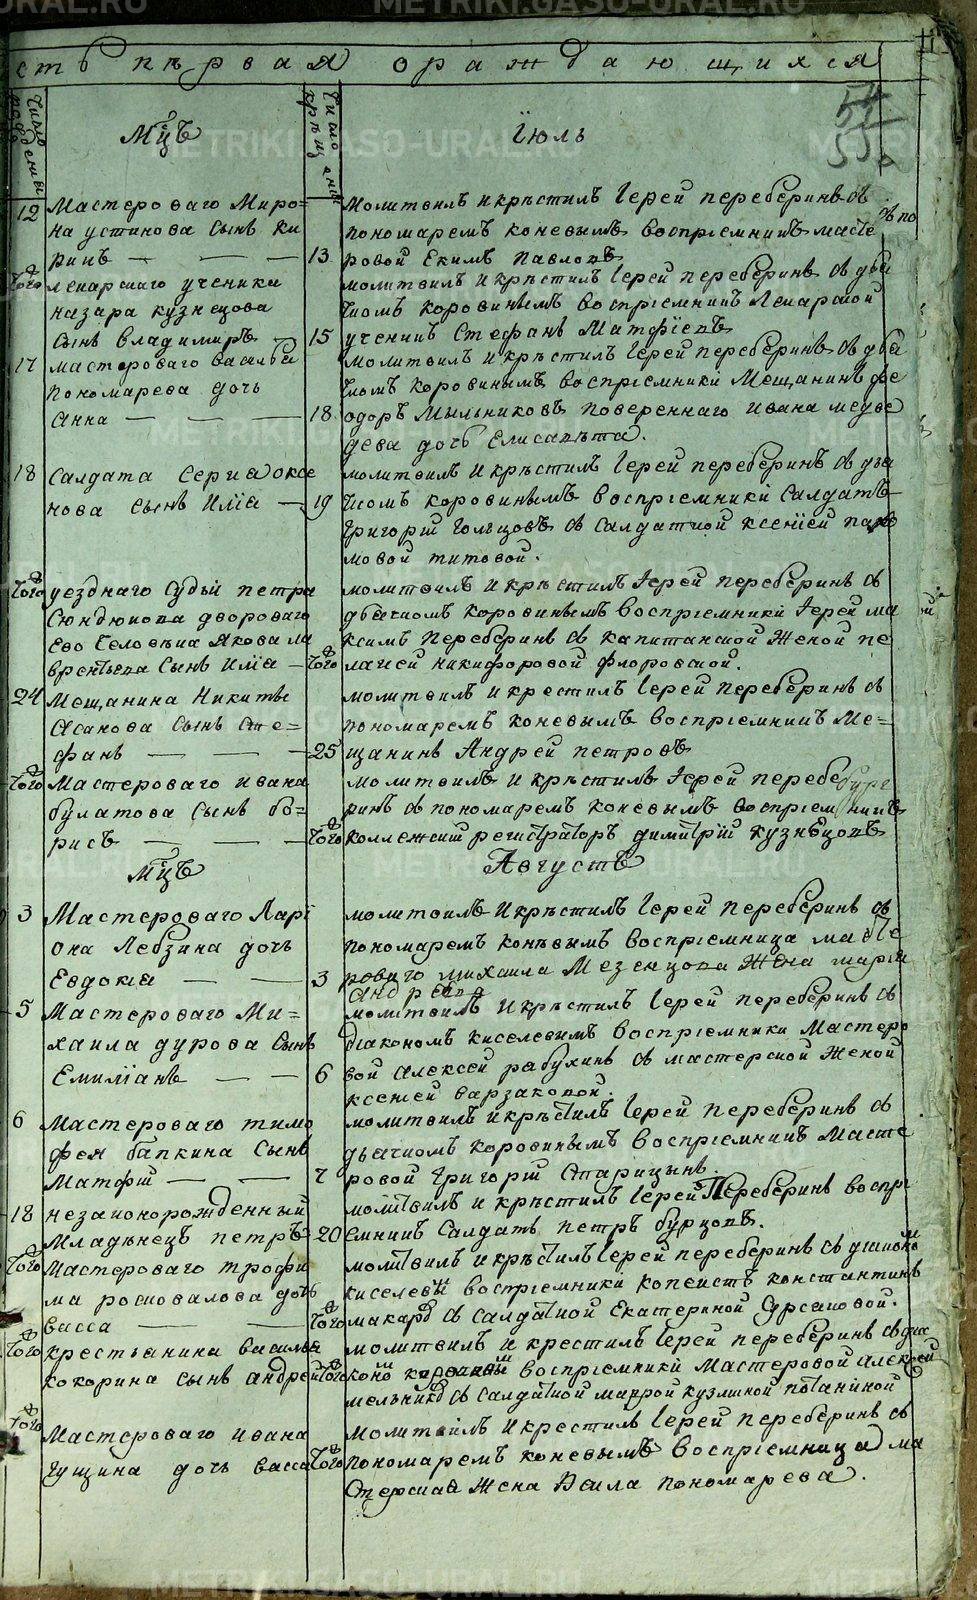 сть первая о раждающихся
число рождения
Мцъ
число крещения
Июль
12 Мастероваго Миро=
на устинова сынъ ки
рикъ
13
молитвилъ и крѣстилъ Іерей переберинъ съ
пономаремъ коневымъ воспріемникъ масте
ровой Екимъ Павловъ
того лекарскаго ученика
назара кузнецова
сынъ владимиръ
15
молитвилъ и крѣстилъ Іерей переберинъ съ дья
чкомъ коровинымъ воспріемникъ Лекарской
ученикъ Стефанъ Матфіевъ
17 мастероваго василья
пономарева дочь
анна
18
молитвилъ и крѣстилъ Іерей переберинъ съ дья
чкомъ коровинымъ воспріемники Мещанинъ фе
одоръ Мыльниковъ повереннаго ивана медве
дева дочь Елисавѣта.
18 Салдата Сергиа оксе
нова сынъ илїа
19
молитвилъ и крѣстилъ Іерей переберинъ съ дья
чкомъ коровинымъ воспріемники Салдатъ
Григорій гольцовъ съ Салдаткой ксенїей пахо
мовой титовой.
того уезднаго Судьи петра
Сюндюкова двороваго
ево человѣка Якова ла
врентьева Сынъ илїа
того
молитвилъ и крѣстилъ Іерей переберинъ съ
дьячкомъ коровинымъ воспріемники Іерей ма
ксимъ переберинъ съ капитанской Женой пе
лагеей никифоровой флоровской.
24 Мещанина Никиты
Асанова Сынъ сте=
фанъ
25
молитвилъ и крестилъ Іерей переберинъ съ
пономаремъ коневымъ воспріемникъ Ме=
щанинъ Андрей петровъ
того Мастероваго ивана
булатова Сынъ бо=
рисъ
того
молитвилъ и крѣстилъ Іерей перебе
ринъ съ пономаремъ коневымъ воспріемникъ
коллежский регистраторъ димитрій кузнѣцовъ
Мцъ
Августъ
3 Мастероваго Ларі
она Лебзина дочь
Евдокїа
3
молитвилъ и крѣстилъ Іерей переберинъ съ
пономаремъ конѣвымъ воспріемница масте
роваго михаила Мезенцова Жена мариа
Андрѣева
5 Мастероваго Ми=
хаила дурова Сынъ
Емиліанъ
6
молитвилъ и крѣстилъ Іерей переберинъ съ
діакономъ киселевымъ воспріемники Мастеро
вой алексей рабухинъ съ мастерской Женой
ксенїей варзаковой.
6 мастероваго тимо
фея бапкина Сынъ
Матфїй
7
молитвилъ и крѣстилъ Іерей переберинъ съ
дьячкомъ коровинымъ воспріемникъ Масте
ровой Григорій Старицынъ.
18 незаконорожденный
младѣнецъ петръ
20
молитвилъ и крѣстилъ Іерей Переберинъ воспрі
емникъ Салдатъ петръ бурцовъ.
того Мастероваго трофи
ма росковалова дочь
васса
того
молитвилъ и крѣстилъ Іерей переберинъ съ дыакономъ
киселевы воспріемники копеистъ константинъ
макаровъ съ Салдаткой Екатериной Сурсаковой.
того крестьянина василья
кокорина сынъ андрей
того
молитвилъ и крестилъ Іерей переберинъ съ дья
комъ воспріемники Мастеровой алексей
мельниковъ съ салдаткой маврой кузминой потаниной
того Мастероваго ивана
гущина дочь васса
того
молитвилъ и крестилъ Іерей переберинъ съ
пономаремъ коневымъ воспріемница ма
стерская Жена Васила пономарева.
METRIKI.GASO-URAL.RU